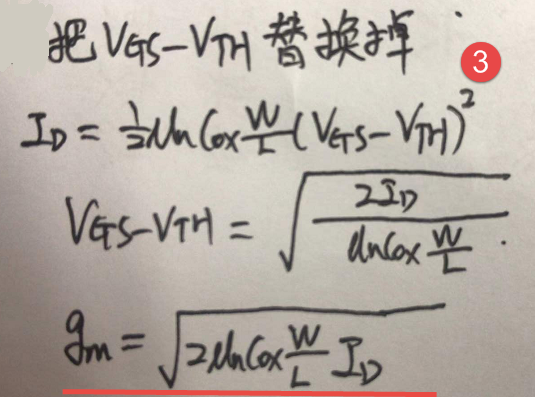 把 VGS-VTH 替换掉
3
ID = 1/2 μnCox W/L (VGS-VTH)²
VGS-VTH = √(2ID / μnCox W/L)
gm = √(2μnCox W/L ID)